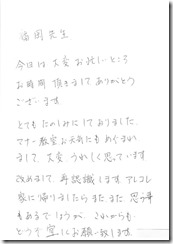 富岡先生
今日は大変お忙しいところ
お時間頂きましてありがとう
ございます
とてもたのしみにしておりました。
マナー教室お天気にもめぐまれ
まして、大変、うれしく思っています
改めまして、再認識しますアレコレ
家に帰りましたらまた、また思う事
もあるでしょうが、これからも
どうぞ宜しくお願い致します